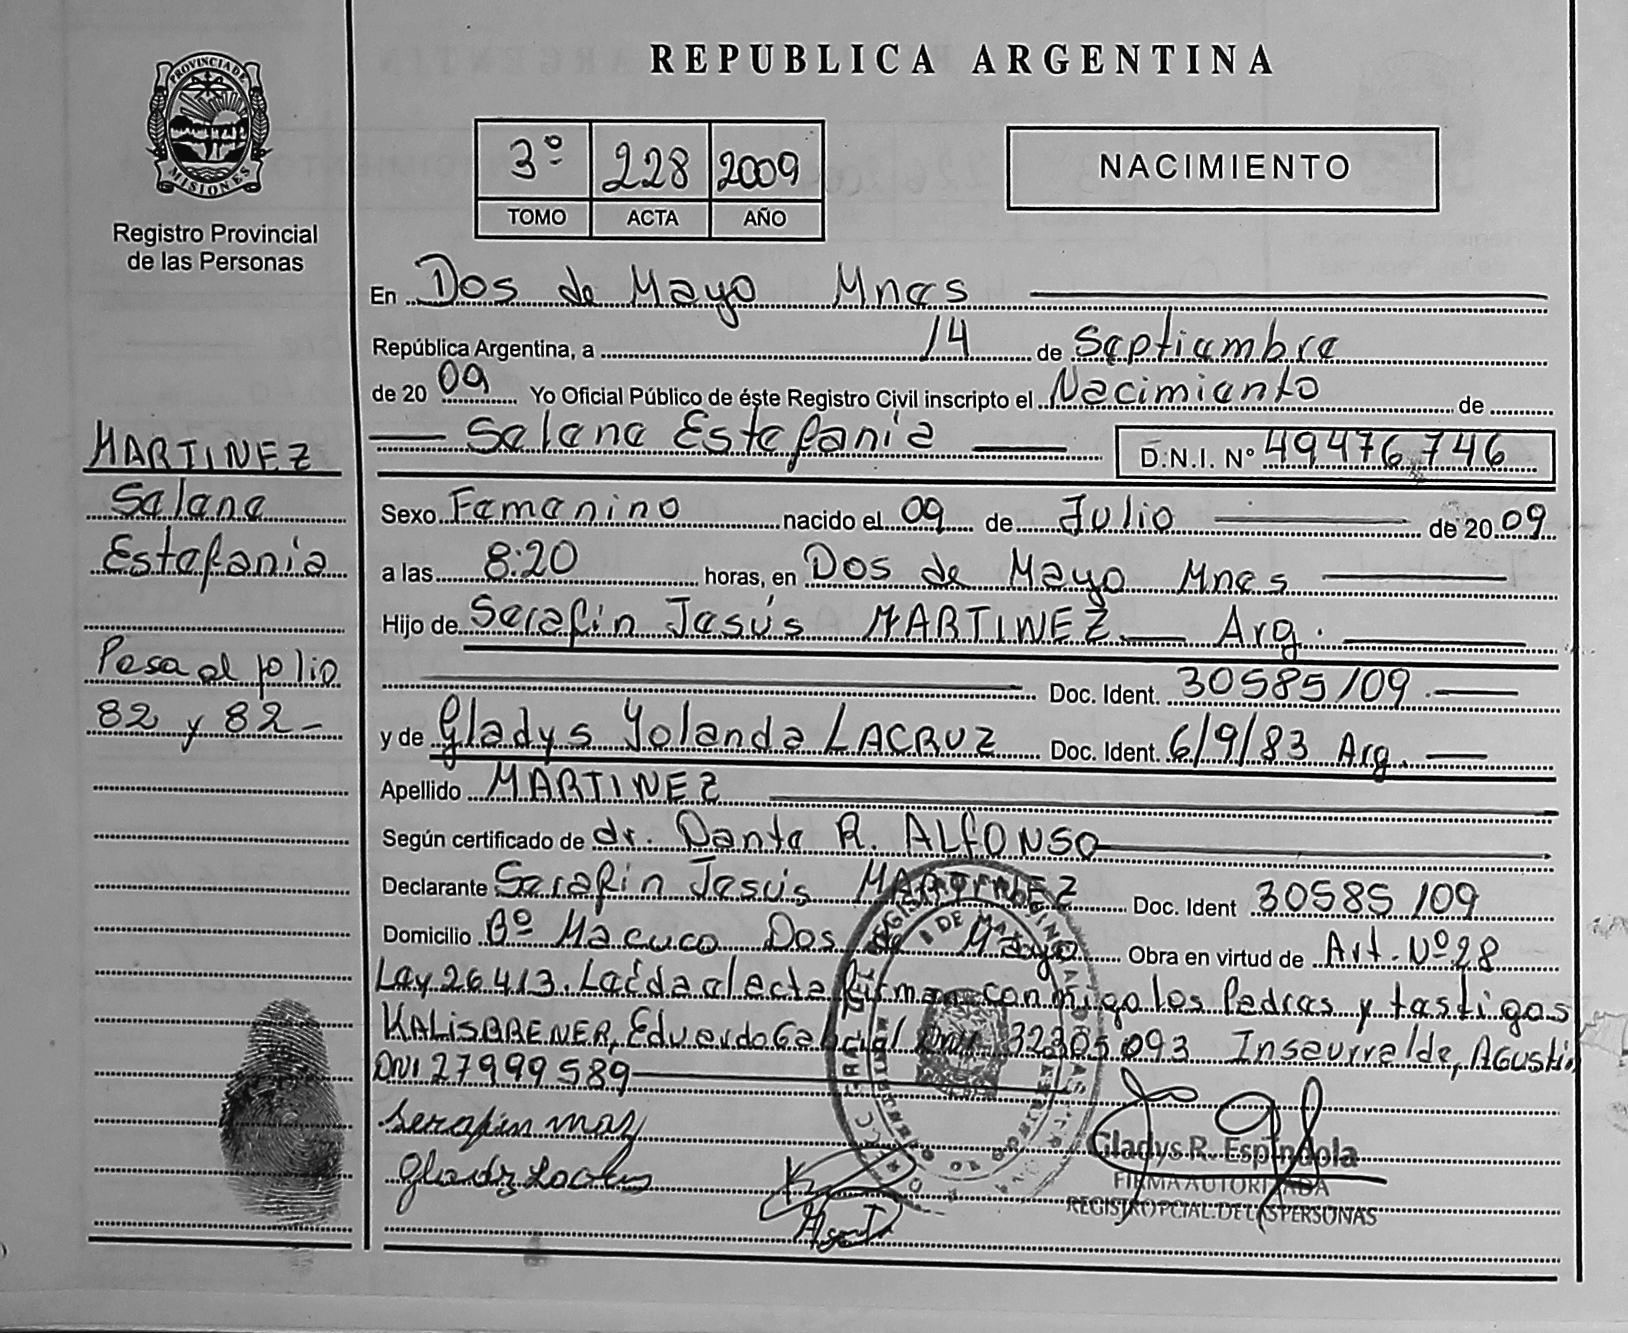 REPUBLICA ARGENTINA
PROVINCIA DE
MISIONES
Registro Provincial
de las Personas
3º 228 2009
TOMO ACTA AÑO
NACIMIENTO
En Dos de Mayo Mnes
República Argentina, a 14 de Septiembre
de 2009 Yo Oficial Público de éste Registro Civil inscripto el Nacimiento de
Selene Estefanía D.N.I. Nº 49476.746
Sexo Femenino nacido el 09 de Julio de 2009
a las 8:20 horas, en Dos de Mayo Mnes
Hijo de Serafín Jesús MARTINEZ Arg.
Doc. Ident. 30585109
y de Gladys Yolanda LACRUZ Doc. Ident. 6/9/83 Arg.
Apellido MARTINEZ
Según certificado de dr. Dante R. ALfONSO
Declarante Serafín Jesús MARTINEZ Doc. Ident 30585109
Domicilio Bº Macuco Dos de Mayo Obra en virtud de Art. Nº 28
Ley 26.413. Leída el acta firman conmigo los Padres y testigos
KALISBRENER, Eduardo Gabriel DNI 32305093 Inseurralde, AGUSTIN
DNI 27999589
MARTINEZ
Selene
Estefanía
Pasa al folio
82 y 82-
Serafin
Gladys R. Espíndola
FIRMA AUTORIZADA
REGISTRO PCIAL. DE LAS PERSONAS